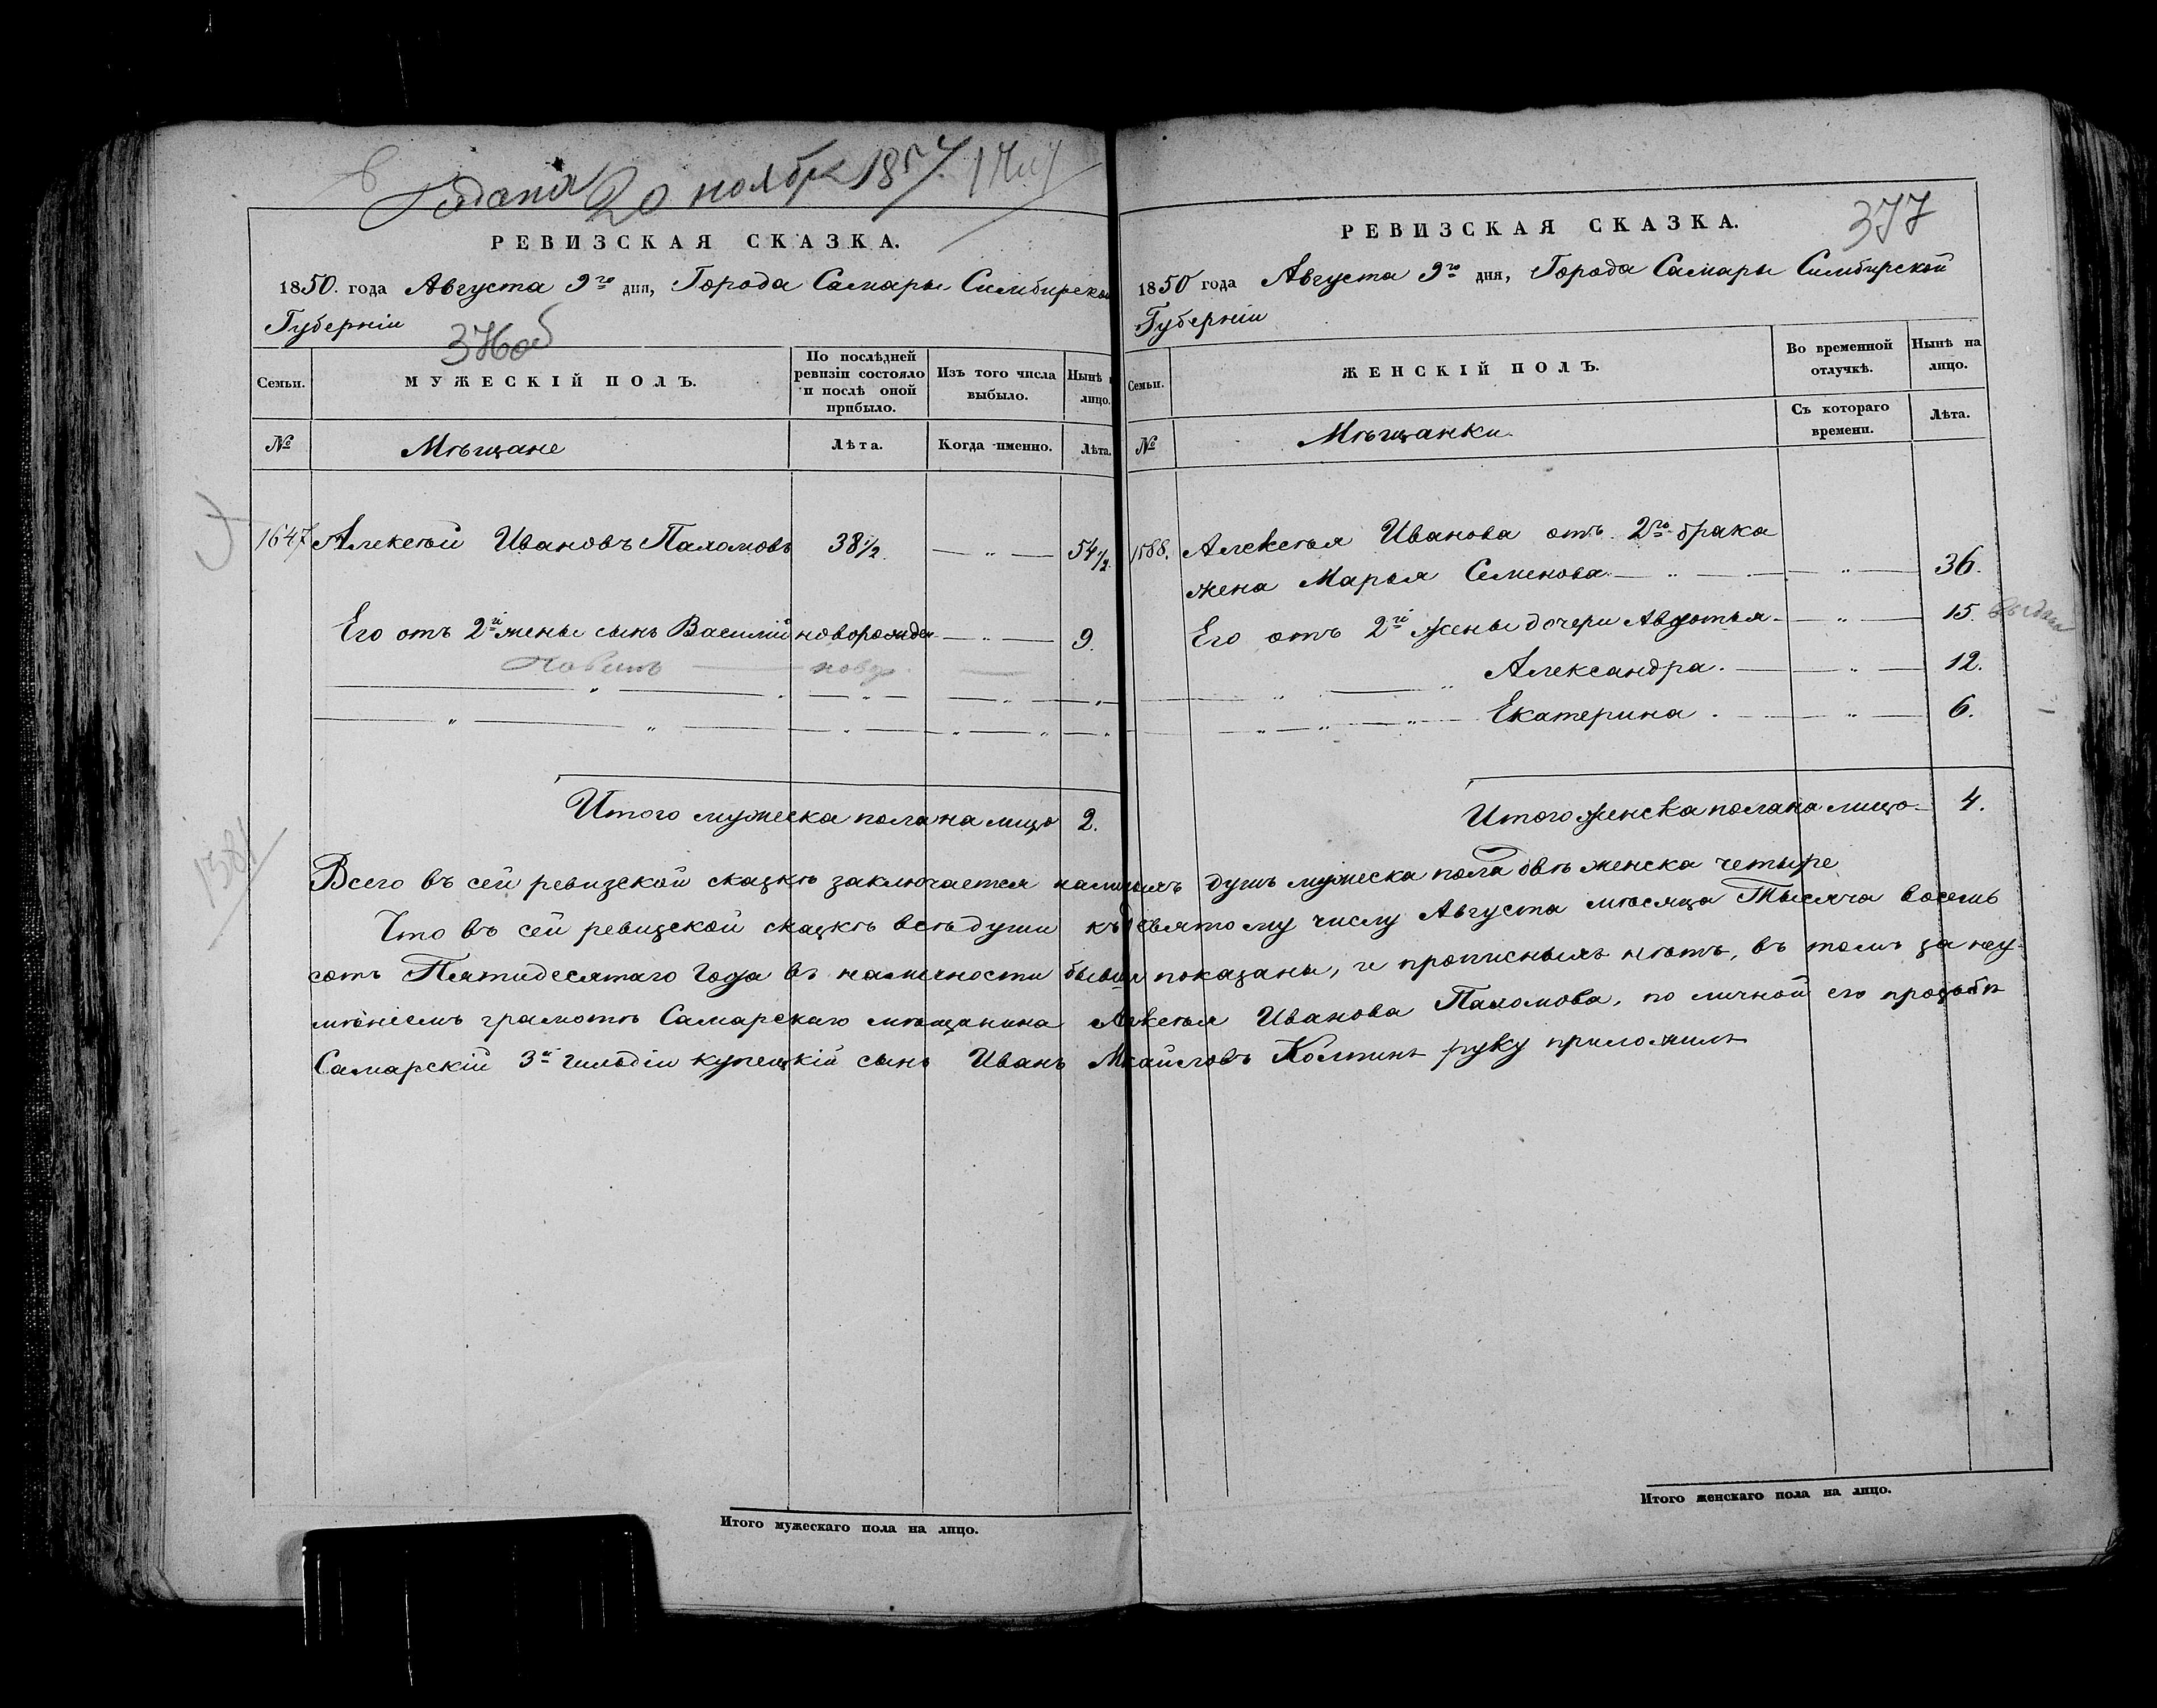 Подана 20 ноября 1857.
РЕВИЗСКАЯ СКАЗКА.
1850. года Августа 9го дня, Города Самары Симбирской
Губерніи
376об
Семьи.
МУЖЕСКІЙ ПОЛЪ.
По послѣдней ревизіи состояло и послѣ оной прибыло.
Изъ того числа выбыло.
Нынѣ лицо.
№
Мѣщане
Лѣта.
Когда именно.
Лѣта.
1647 Алексѣй Ивановъ Пахомовъ 38½ — „ — 54½.
Его отъ 2й жены сынъ Василій новорожден — „ — 9.
новор
Итого мужеска пола на лицо 2.
1381
РЕВИЗСКАЯ СКАЗКА.
377
1850 года Августа 9го дня, Города Самары Симбирской
Губерніи
Семьи.
ЖЕНСКІЙ ПОЛЪ.
Во временной отлучкѣ.
Нынѣ на лицо.
№
Мѣщанки.
Съ котораго времени.
Лѣта.
1588. Алексѣя Иванова отъ 2го брака
жена Марья Семенова — „ — 36.
Его отъ 2й жены дочери Авдотья — „ — 15.
Александра. — „ — 12.
Екатерина. — „ — 6.
Итого женска пола на лицо 4.
Всего въ сей ревизской сказкѣ заключается наличныхъ душъ мужеска пола двѣ женска четыре
Что въ сей ревизской сказкѣ всѣ души къ девятому числу Августа мѣсяца Тысяча восемь
сотъ Пятидесятаго Года въ наличности бывшія показаны, и прописныхъ нѣтъ, въ томъ за неу-
мѣніемъ грамотѣ Самарскаго мѣщанина Алексѣя Иванова Пахомова, по личной его прозьбѣ
Самарскій 3й гильдіи купецкій сынъ Иванъ руку приложилъ
Итого мужескаго пола на лицо.
Итого женскаго пола на лицо.